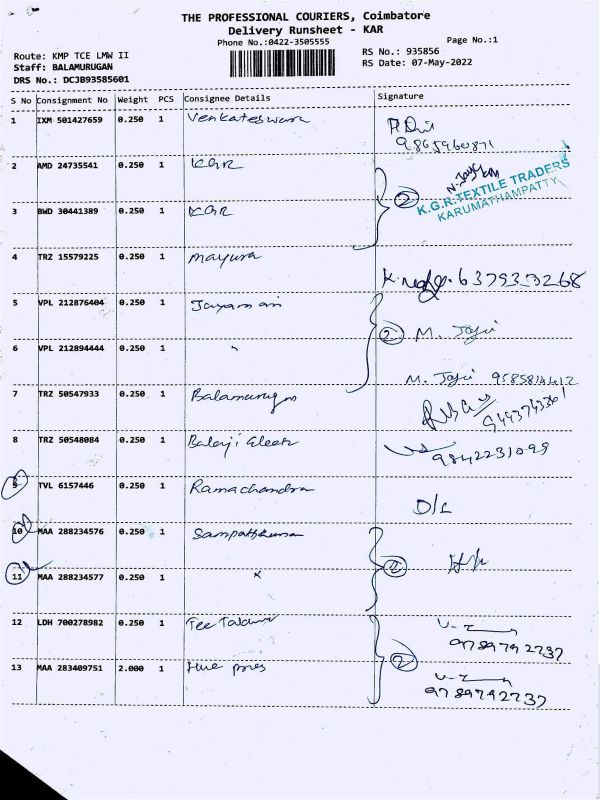 THE PROFESSIONAL COURIERS, Coimbatore
Delivery Runsheet - KAR
Phone No.:0422-3505555
Page No.:1
Route: KMP TCE LMW II
RS No.: 935856
Staff: BALAMURUGAN
RS Date: 07-May-2022
DRS No.: DCJB93585601
S No Consignment No Weight PCS Consignee Details Signature
1 IXM 501427659 0.250 1 Venkateswara
9865960871
2 AMD 24735541 0.250 1 KGR
2
K.G.R.TEXTILE TRADERS
KARUMATHAMPATTY
3 BWD 30441389 0.250 1 KGR
4 TRZ 15579225 0.250 1 Mayura
6379333268
5 VPL 212876404 0.250 1 Jayamani
2 M.
6 VPL 212894444 0.250 1 "
M.
7 TRZ 50547933 0.250 1 Balamurugan
8 TRZ 50548084 0.250 1 Balaji
9842231099
9 TVL 6157446 0.250 1 Ramachandra
D/L
10 MAA 288234576 0.250 1 Sampathkumar
2
11 MAA 288234577 0.250 1
12 LDH 700278982 0.250 1 Tee
9789792737
2
13 MAA 283409751 2.000 1 Hue pres
9789792737